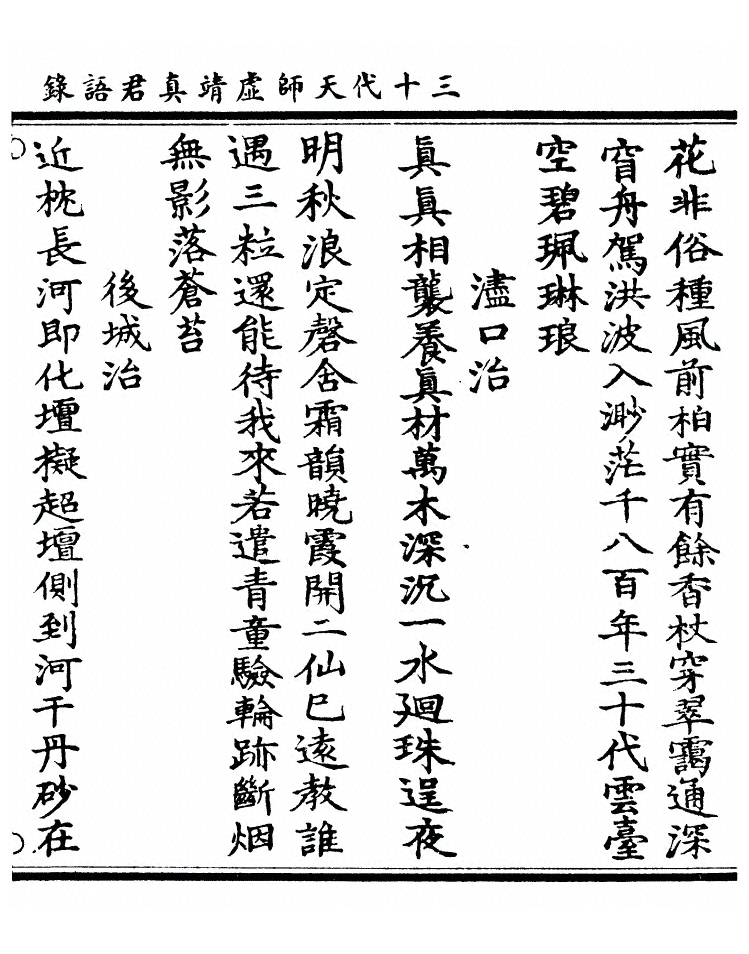 三十代天師虛靖真君語錄
花非俗種風前柏實有餘香杖穿翠靄通深
窅舟駕洪波入渺茫千八百年三十代雲臺
空碧珮琳琅
濜口治
眞眞相襲養眞材萬木深沉一水廻珠逞夜
明秋浪定磬舍霜韻曉霞開二仙已遠教誰
遇三粒還能待我來若遣青童驗輪跡斷烟
無影落蒼苔
後城治
近枕長河即化壇擬超壇側到河干丹砂在